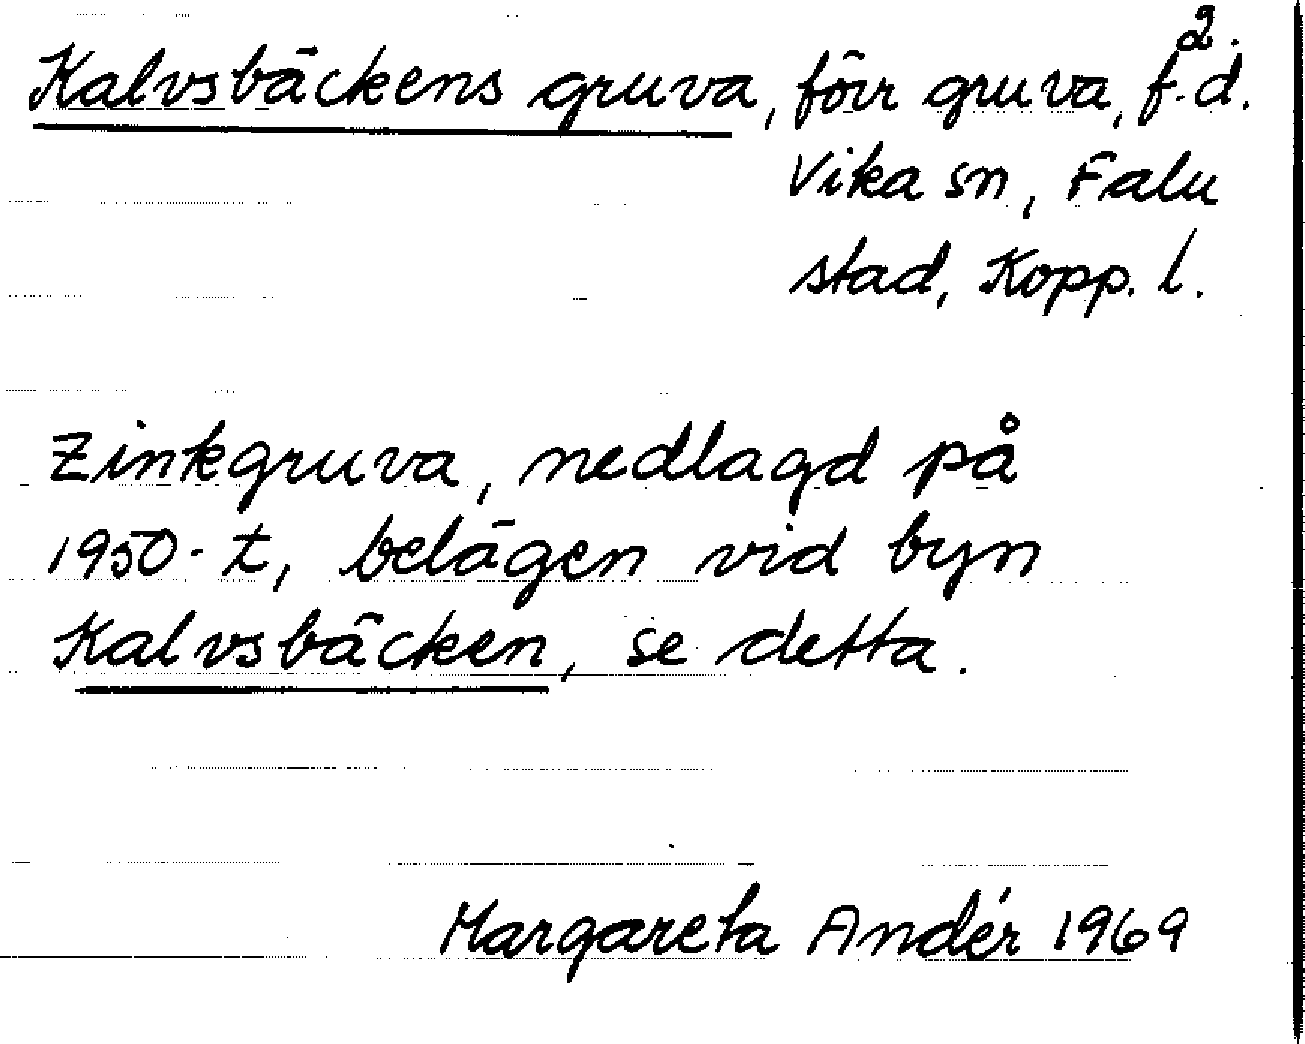 2.
Kalvsbäckens gruva, förr gruva, f.d.
Vika sn, Falu
stad, Kopp. l.
Zinkgruva, nedlagd på
1950-t, belägen vid byn
Kalvsbäcken, se detta.
Margareta Andér 1969